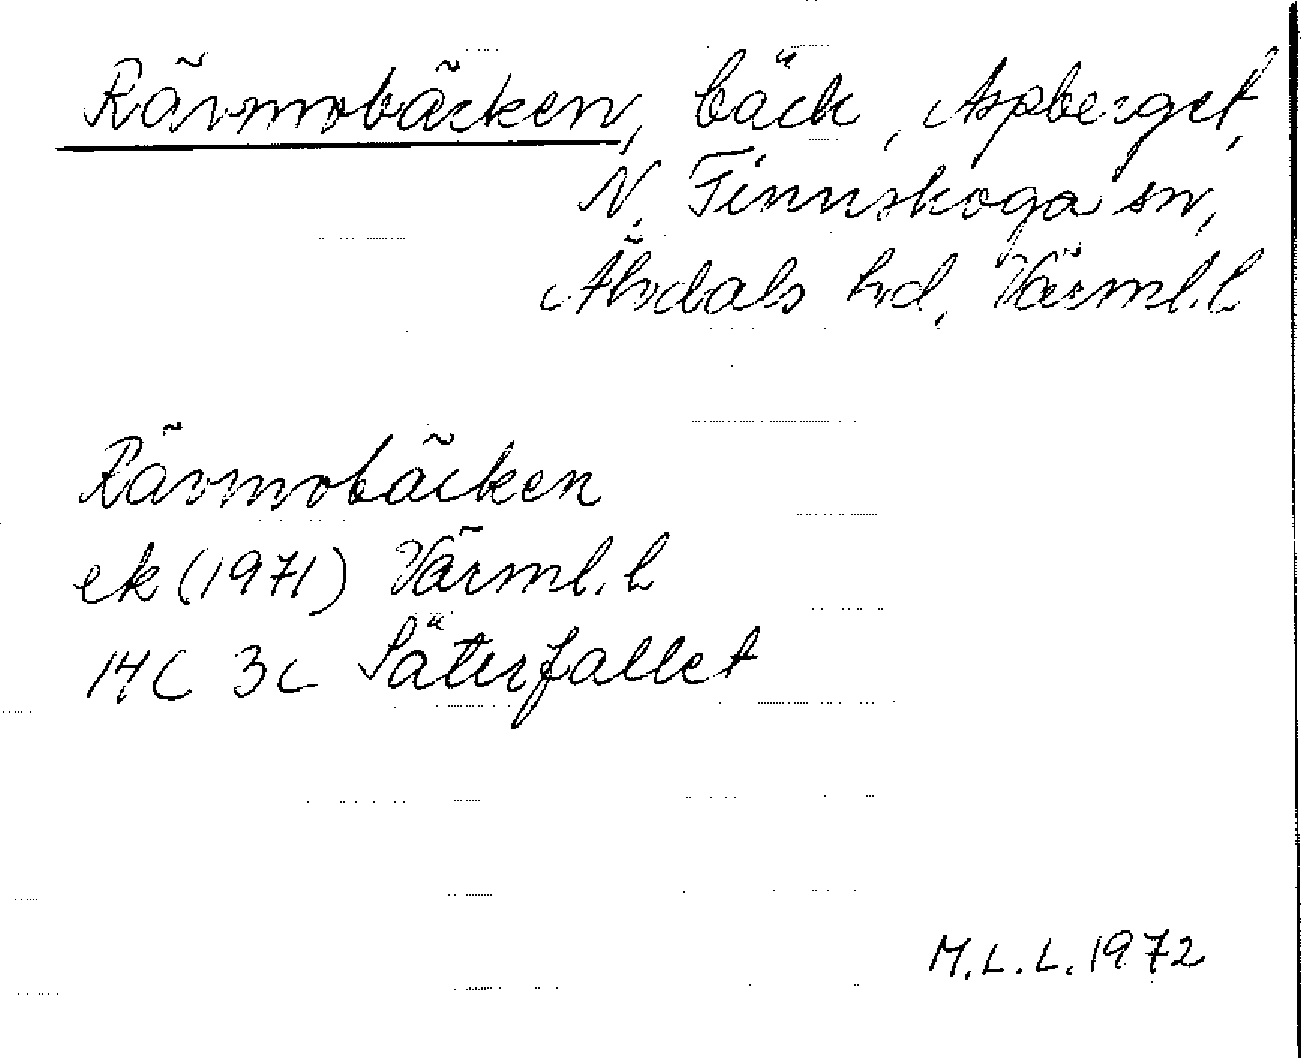 Rävmobäcken, bäck, Aspberget,
N. Finnskoga sn,
Älvdals hd, Värml. l
Rävmobäcken
ek (1971) Värml. l
14C 3c Säterfallet
M.L.L. 1972